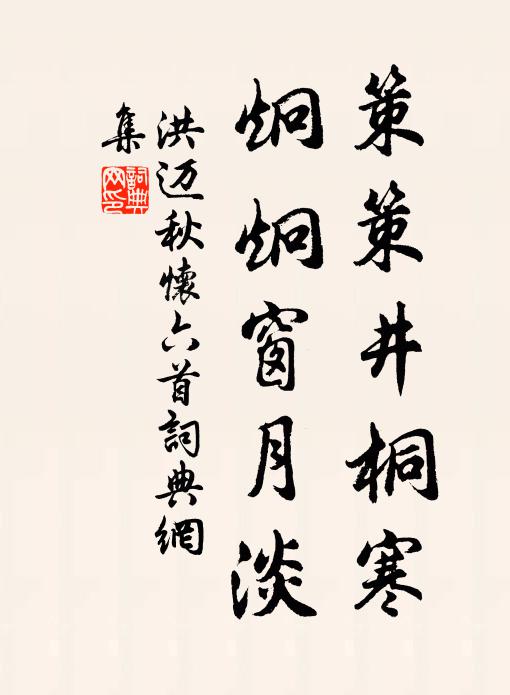 策策井桐寒
炯炯窗月淡
洪迈秋懷六首詞典網
集
詞典
网印